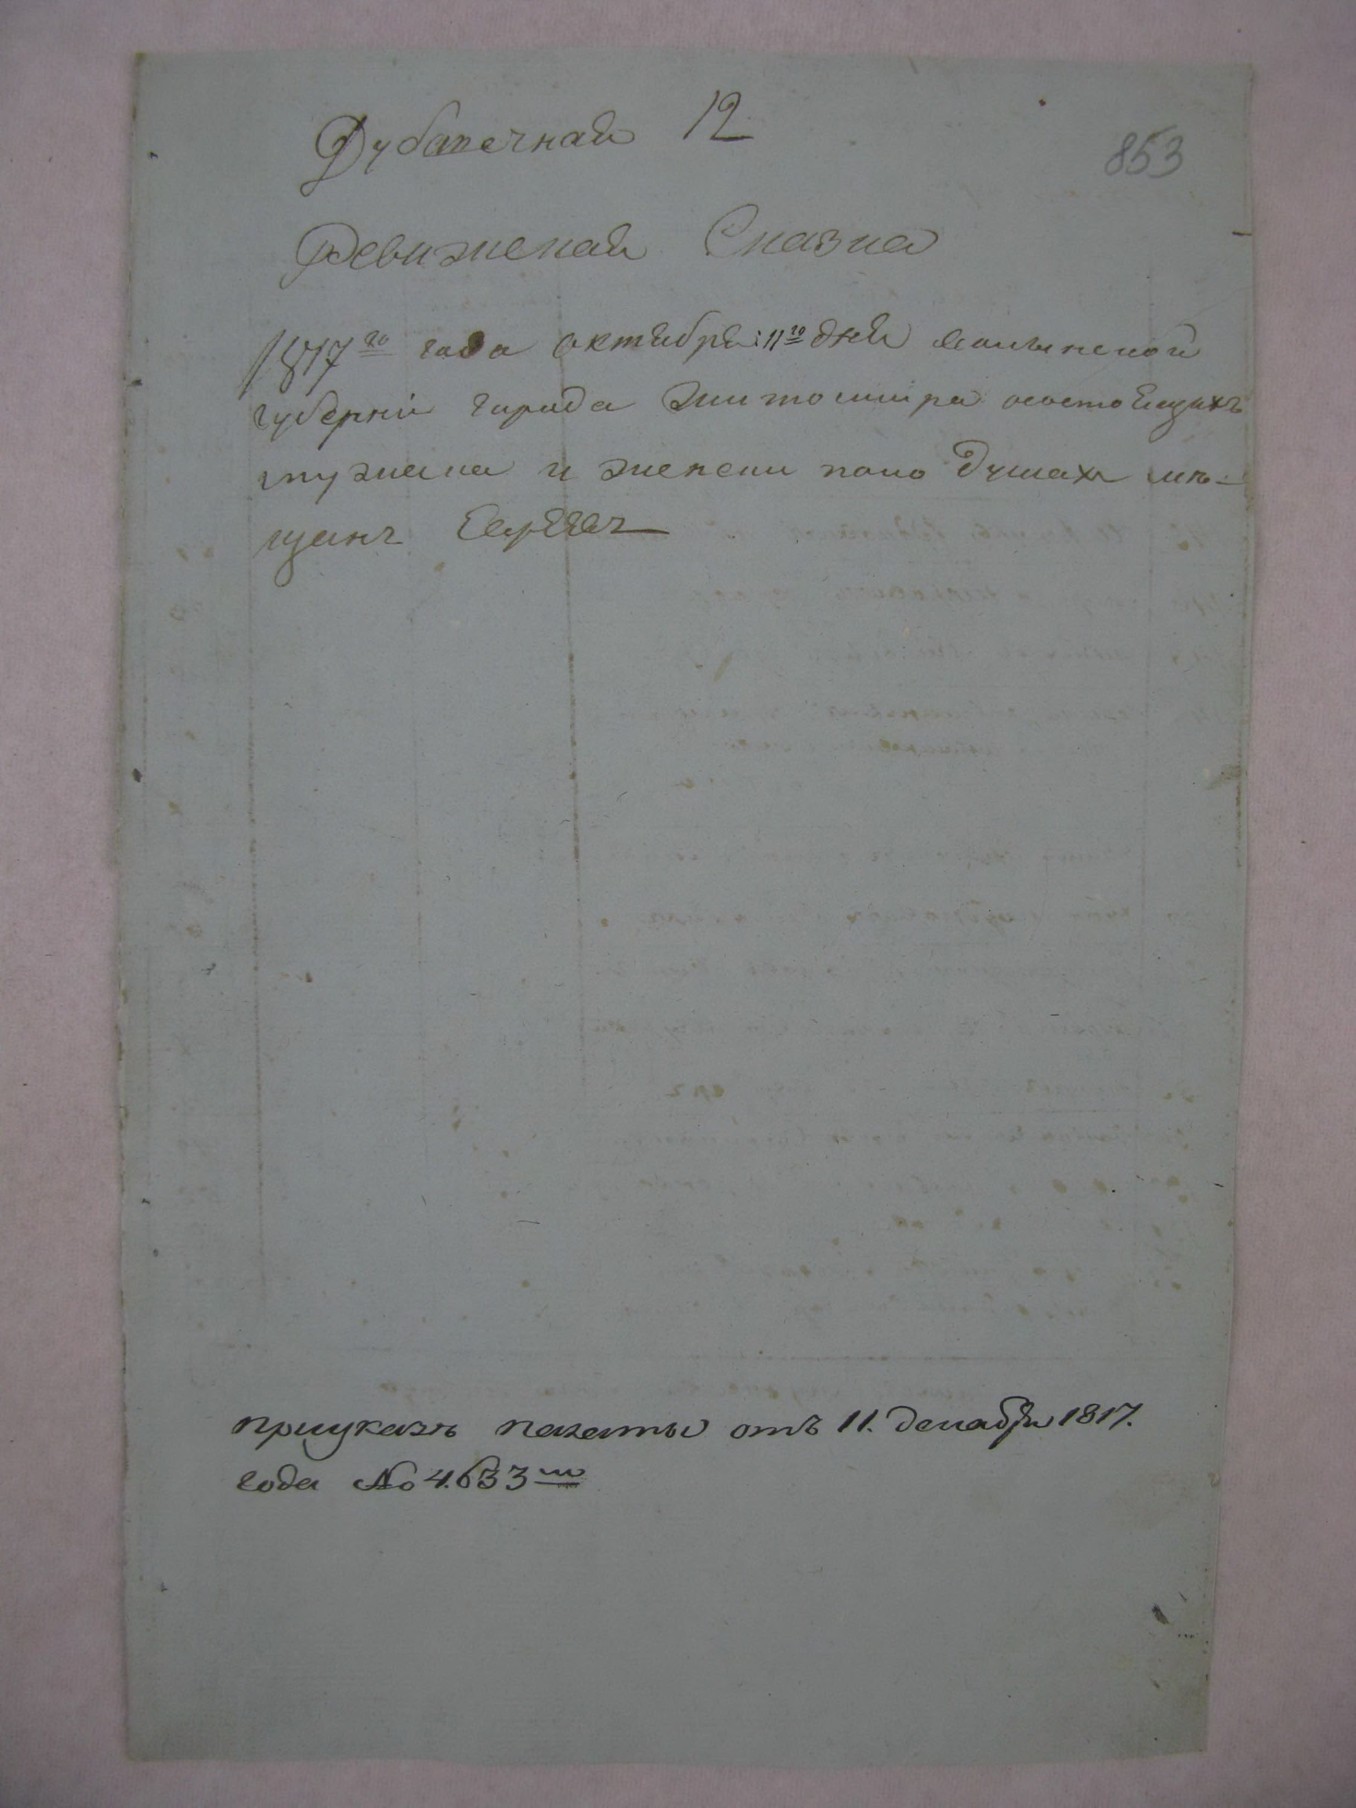 Дубапечная 12
853
Ревижская Сказка
1817го года октября 11го дня волынской
губерніи города Житомира осостоящихъ
мужска и женска пола душахъ мѣ-
щанъ Евреевъ
приуказѣ палаты отъ 11. декабря 1817.
года No 4.633мъ